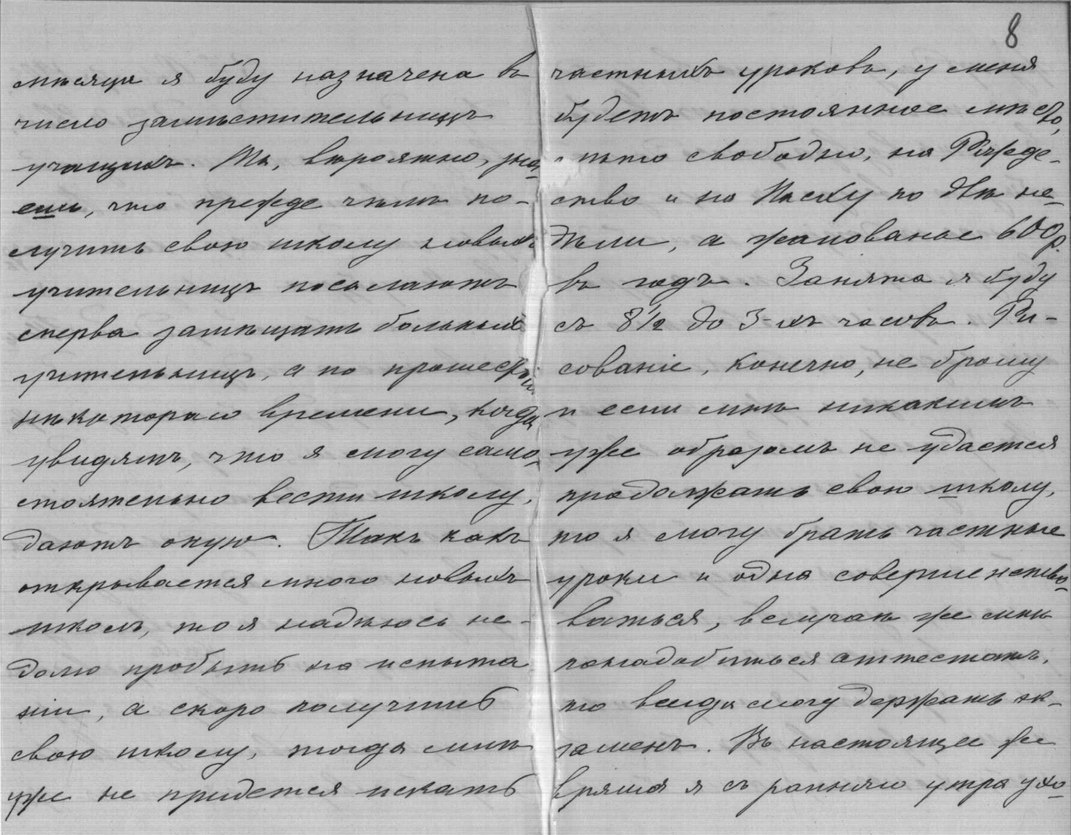 8
мѣсяца я буду назначена въ
число замѣстительницъ
учащихъ. Ты, вѣроятно, зна-
ешь, что прежде чѣмъ по-
лучить свою школу новыхъ
учительницъ посылаютъ
сперва замѣщать больныхъ
учительницъ, а по прошествіи
нѣкотораго времени, когда
увидятъ, что я могу само-
стоятельно вести школу,
даютъ оную. Такъ какъ
открывается много новыхъ
школъ, то я надѣюсь не-
долго пробыть на испыта-
ніи, а скоро получить
свою школу, тогда мнѣ
уже не придется искать
частныхъ уроковъ, у меня
будетъ постоянное мѣсто,
лѣто свободно, на Рожде-
ство и на Пасху по двѣ не-
дѣли, а жалованье 600 р.
въ годъ. Занята я буду
съ 8 1/2 до 3-хъ часовъ. Ри-
сованіе, конечно, не брошу
и если мнѣ никакимъ
уже образомъ не удастся
продолжать свою школу,
то я могу брать частные
уроки и одна совершенство-
ваться, въ случаѣ же мнѣ
понадобиться аттестатъ,
то всегда могу держать эк-
заменъ. Въ настоящее же
время я съ ранняго утра ухо-